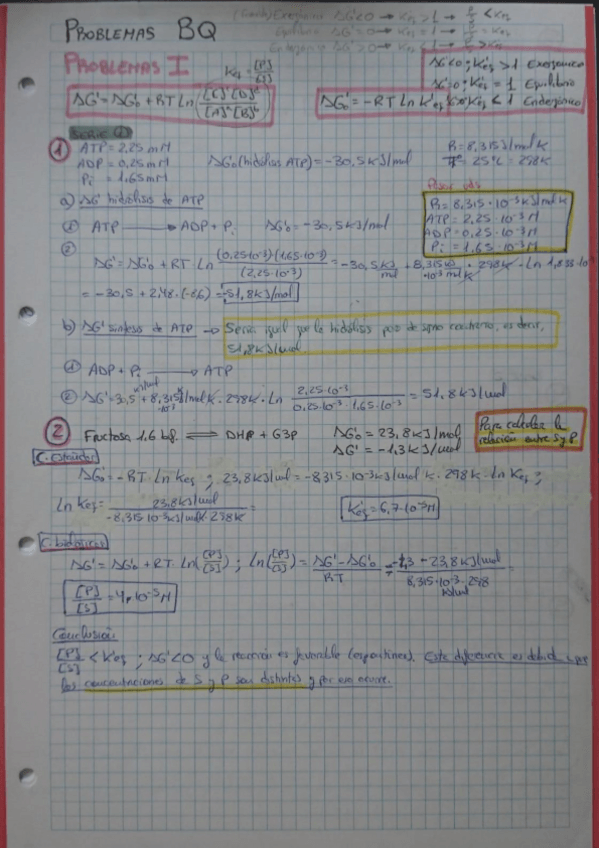 (Gands) Exergónica ΔG'<0 → Keq > 1 → P/S < Keq
Equilibrio ΔG'=0 → Keq = 1 → P/S = Keq
Endergónica ΔG'>0 → Keq < 1 → P/S > Keq
PROBLEMAS BQ
PROBLEMAS I
Keq = [P]/[S]
ΔG'<0; K'eq > 1 Exergónico
ΔG'=0; K'eq = 1 Equilibrio
K'eq < 1 Endergónico
ΔG' = ΔG'o + RT Ln [C]^c [D]^d / [A]^a [B]^b
ΔG'o = -RT Ln K'eq
SERIE
1 ATP = 2,25 mM
ADP = 0,25 mM
Pi = 1,65 mM
ΔG'o (hidólisis ATP) = -30,5 kJ/mol
R = 8,315 J/mol K
Tª = 25ºC = 298K
Pasar uds
R = 8,315·10^-3 kJ/mol K
ATP = 2,25·10^-3 M
ADP = 0,25·10^-3 M
Pi = 1,65·10^-3 M
a) ΔG' hidólisis de ATP
① ATP → ADP + Pi ΔG'o = -30,5 kJ/mol
② ΔG' = ΔG'o + RT·Ln (0,25·10^-3)(1,65·10^-3) / (2,25·10^-3) = -30,5 kJ/mol + 8,315 kJ/·10^-3 mol K · 298K · Ln 1,833·10
= -30,5 + 2,48·(-8,6) = -51,8 kJ/mol
b) ΔG' síntesis de ATP → Seria igual que la hidólisis pero de signo contrario, es decir,
51,8 kJ/mol.
① ADP + Pi → ATP
② ΔG' = 30,5 kJ/mol + 8,315·10^-3 J/mol K · 298K · Ln 2,25·10^-3 / 0,25·10^-3 · 1,65·10^-3 = 51,8 kJ/mol
2 Fructosa 1,6 bf. ⇌ DHA + G3P
ΔG'o = 23,8 kJ/mol
ΔG' = -1,3 kJ/mol
Para calcular la
relación entre S y P.
C. estándar
ΔG'o = -RT Ln Keq ; 23,8 kJ/mol = -8,315·10^-3 kJ/mol K · 298K · Ln Keq ;
Ln Keq = 23,8 kJ/mol / -8,315·10^-3 kJ/mol K · 298K =
K'eq = 6,7·10^-5 M
ΔG' = ΔG'o + RT·Ln([P]/[S]) ; ln([P]/[S]) = ΔG' - ΔG'o / RT = -1,3 - 23,8 kJ/mol / 8,315·10^-3 · 298 kJ/mol =
[P]/[S] = 4, · 10^-5 M
Conclusión
[P]/[S] < K'eq ; ΔG'<0 y la reacción es favorable (espontánea). Esta diferencia es debida a que
las concentraciones de S y P son distintas y por eso ocurre.